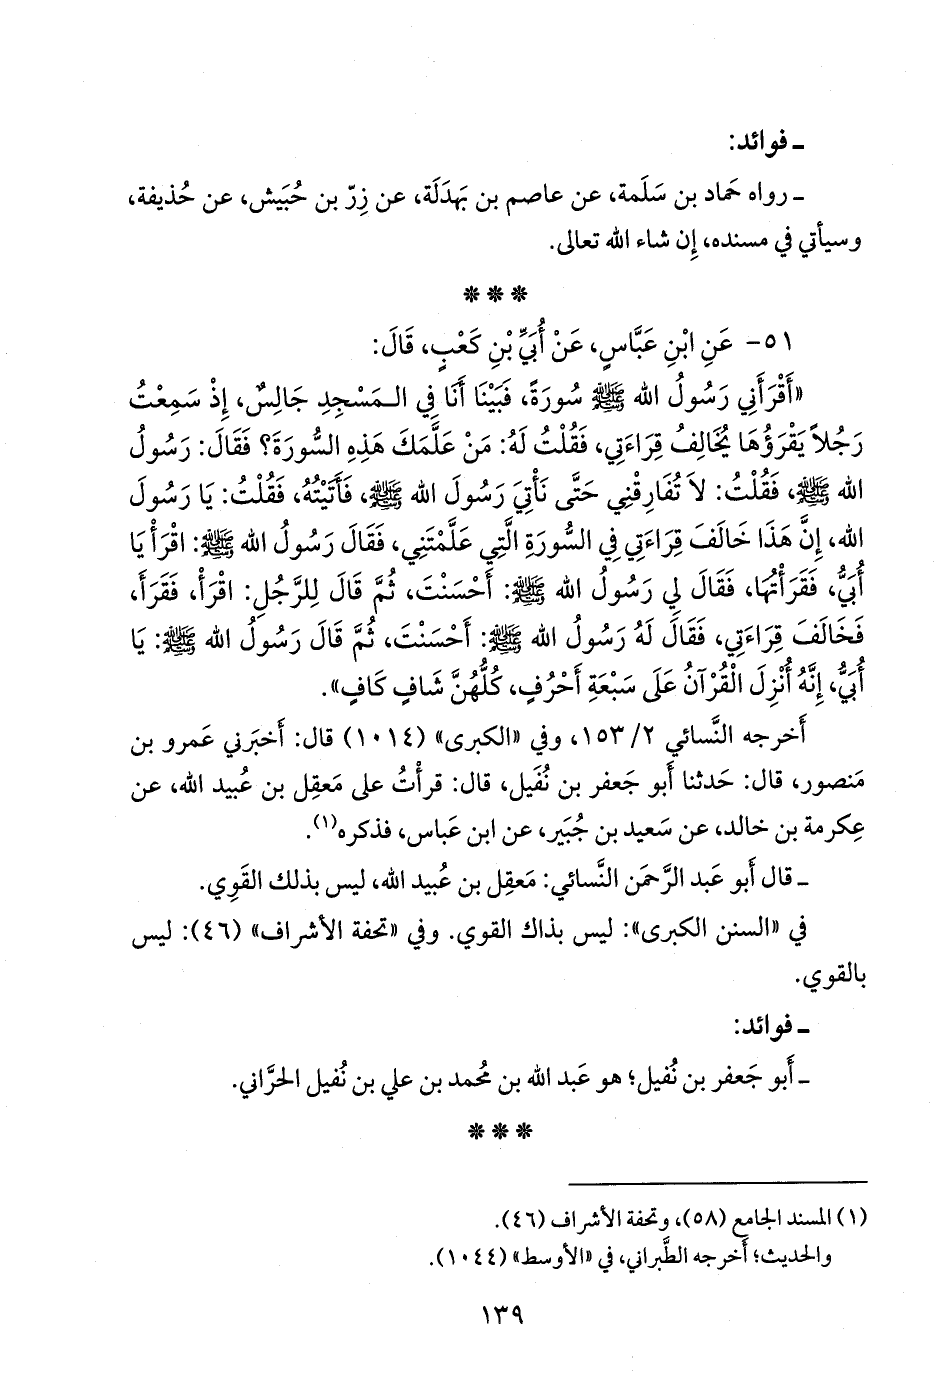 ـ فوائد:
ـ رواه حَماد بن سَلَمة، عن عاصم بن بَهدَلَة، عن زِرّ بن حُبَيش، عن حُذيفة،
وسيأتي في مسنده، إِن شاء الله تعالى.
***
٥١- عَنِ ابْنِ عَبَّاسٍ، عَنْ أُبَيِّ بْنِ كَعْبٍ، قَالَ:
«أَقْرَأَنِي رَسُولُ الله ﷺ سُورَةً، فَبَيْنَا أَنَا فِي الـمَسْجِدِ جَالِسٌ، إِذْ سَمِعْتُ
رَجُلاً يَقْرَؤُهَا يُخَالِفُ قِرَاءَتِي، فَقُلْتُ لَهُ: مَنْ عَلَّمَكَ هَذِهِ السُّورَةَ؟ فَقَالَ: رَسُولُ
الله ﷺ، فَقُلْتُ: لاَ تُفَارِقْنِي حَتَّى نَأْتِيَ رَسُولَ الله ﷺ، فَأَتَيْتُهُ، فَقُلْتُ: يَا رَسُولَ
الله، إِنَّ هَذَا خَالَفَ قِرَاءَتِي فِي السُّورَةِ الَّتِي عَلَّمْتَنِي، فَقَالَ رَسُولُ الله ﷺ: اقْرَأْ يَا
أُبَيُّ، فَقَرَأْتُهَا، فَقَالَ لِي رَسُولُ الله ﷺ: أَحْسَنْتَ، ثُمَّ قَالَ لِلرَّجُلِ: اقْرَأْ، فَقَرَأَ،
فَخَالَفَ قِرَاءَتِي، فَقَالَ لَهُ رَسُولُ الله ﷺ: أَحْسَنْتَ، ثُمَّ قَالَ رَسُولُ الله ﷺ: يَا
أُبَيُّ، إِنَّهُ أُنْزِلَ الْقُرْآنُ عَلَى سَبْعَةِ أَحْرُفٍ، كُلُّهُنَّ شَافٍ كَافٍ».
أَخرجه النَّسائي ٢/ ١٥٣، وفي «الكبرى» (١٠١٤) قال: أَخبَرني عَمرو بن
مَنصور، قال: حَدثنا أَبو جَعفر بن نُفَيل، قال: قرأْتُ على مَعقِل بن عُبيد الله، عن
عِكرمة بن خالد، عن سَعيد بن جُبَير، عن ابن عَباس، فذكره(١).
ـ قال أَبو عَبد الرَّحمَن النَّسائي: مَعقِل بن عُبيد الله، ليس بذلك القَوِي.
في «السنن الكبرى»: ليس بذاك القوي. وفي «تحفة الأشراف» (٤٦): ليس
بالقوي.
ـ فوائد:
ـ أَبو جَعفر بن نُفيل؛ هو عَبد الله بن مُحمد بن علي بن نُفيل الحَرَّاني.
***
(١) المسند الجامع (٥٨)، وتحفة الأشراف (٤٦).
والحديث؛ أَخرجه الطَّبراني، في «الأوسط» (١٠٤٤).
١٣٩